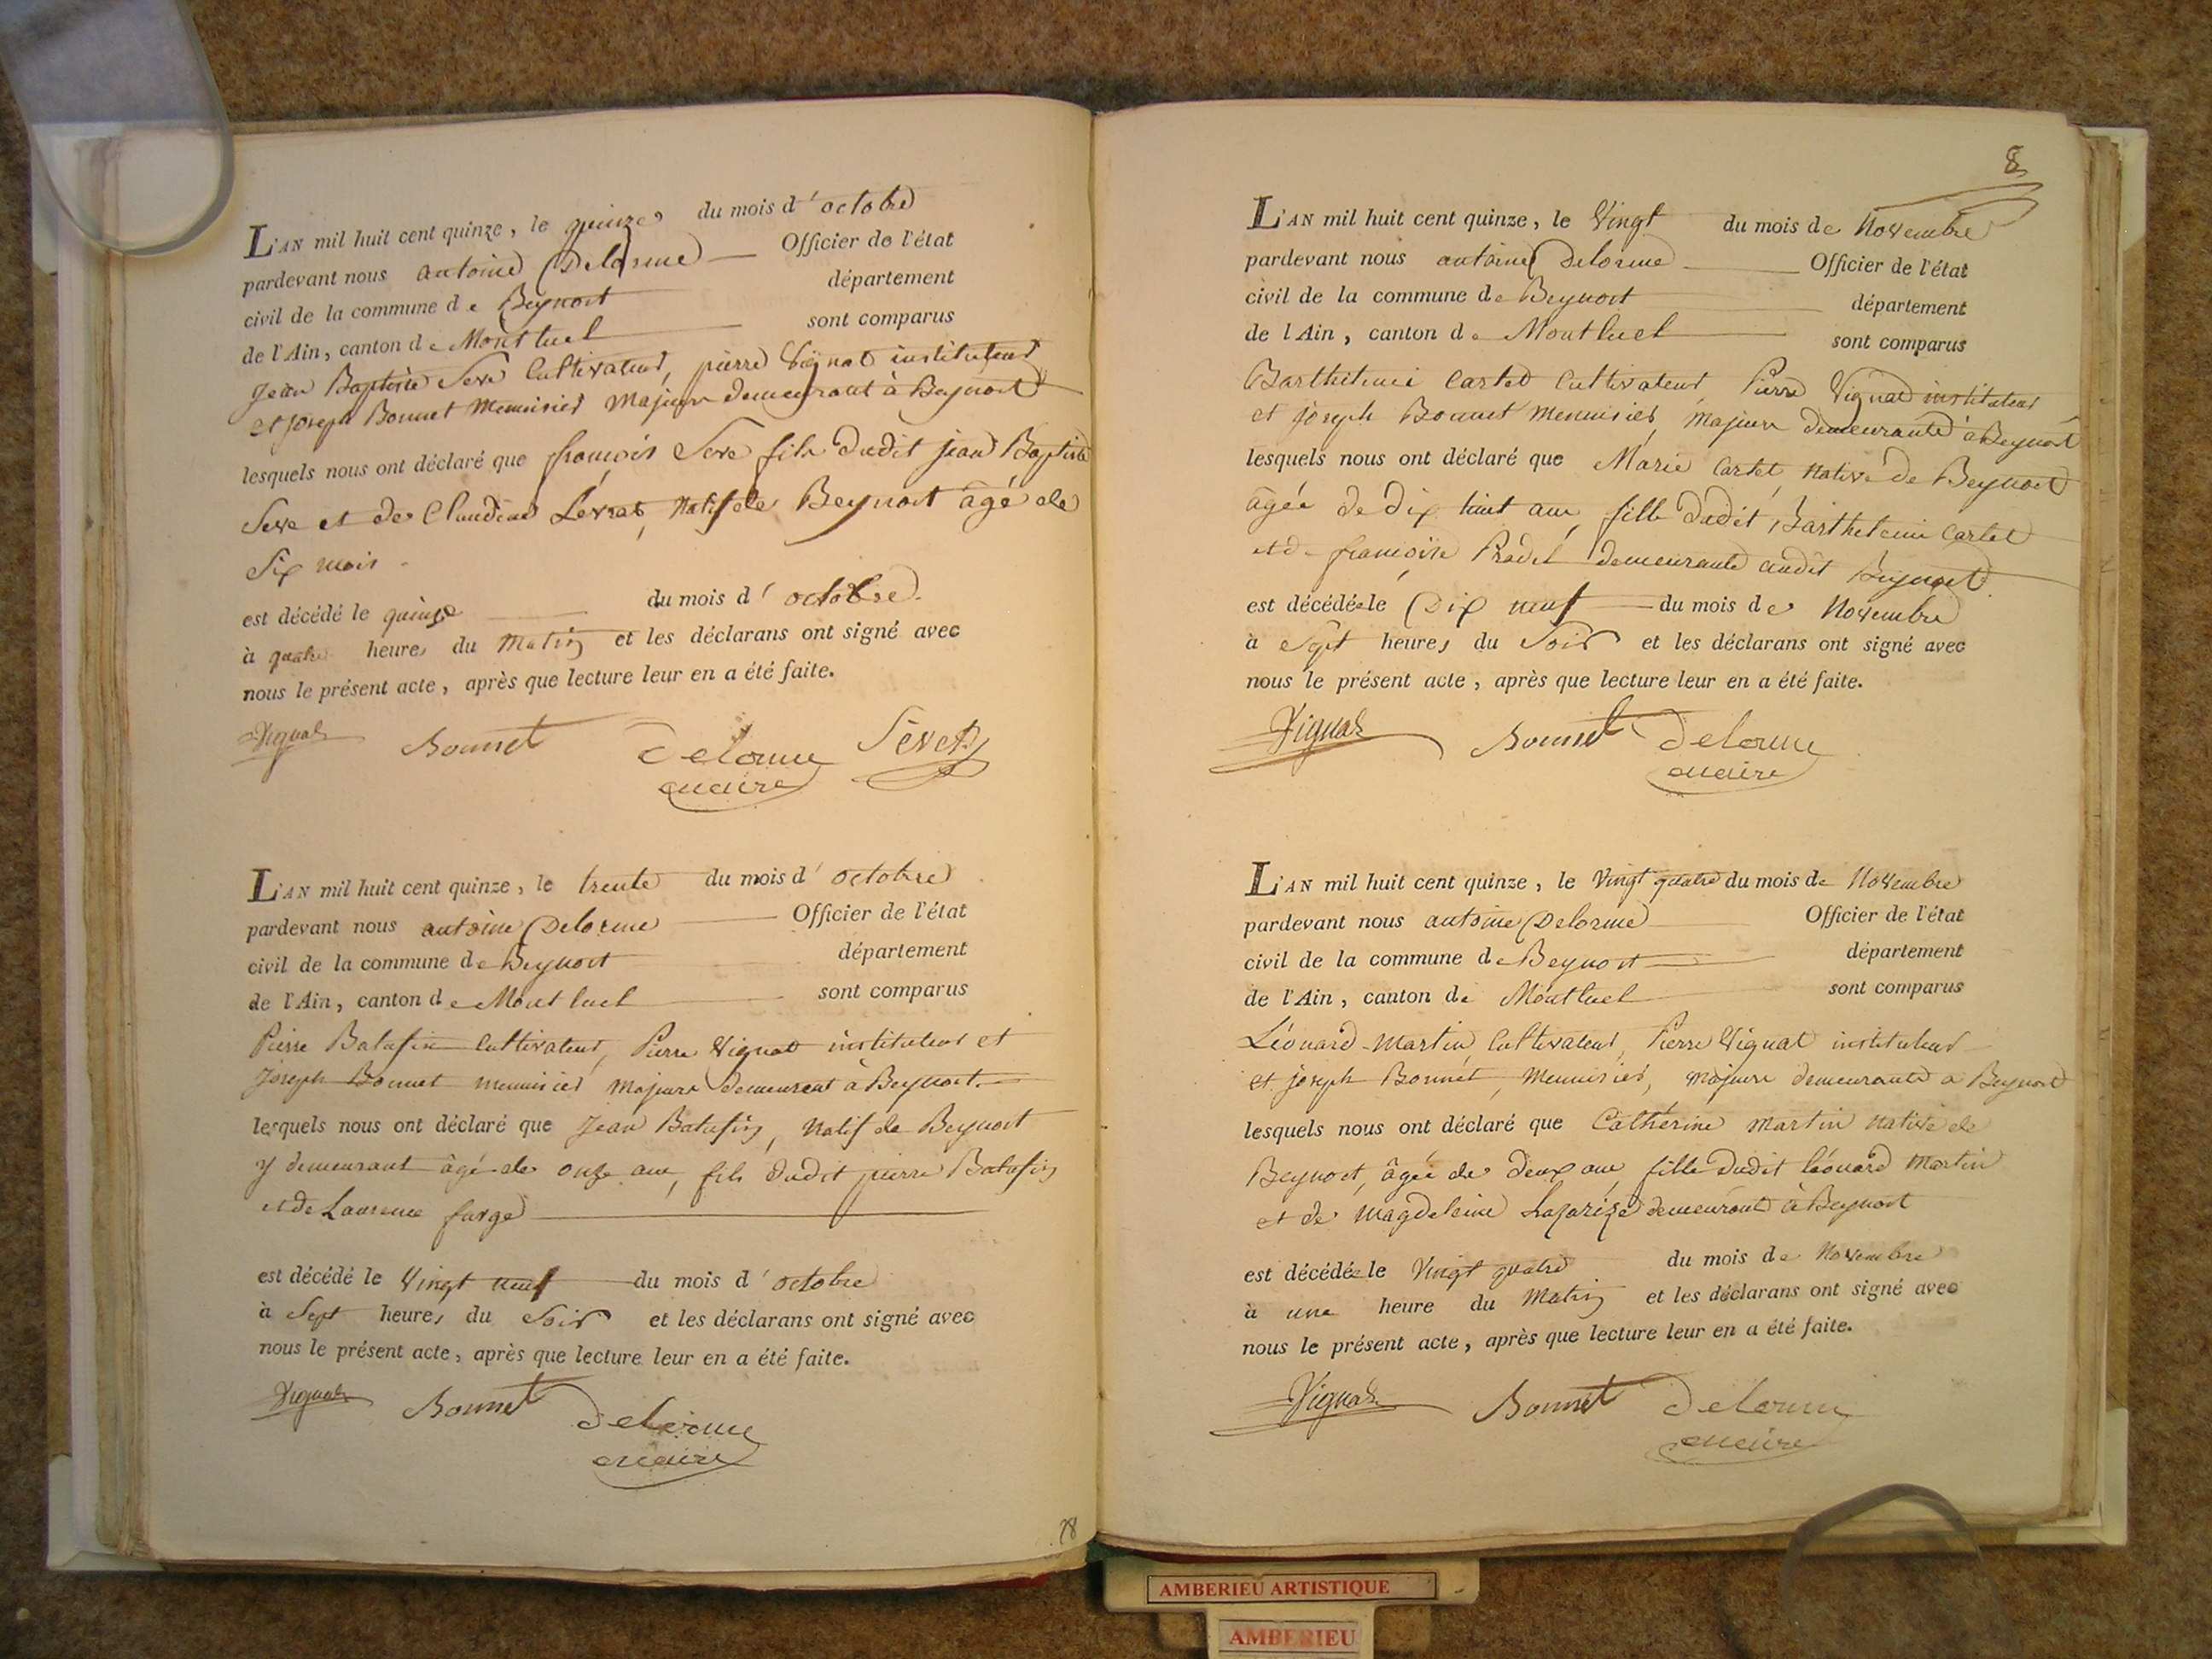 L'AN mil huit cent quinze, le quinze du mois d'octobre
pardevant nous antoine Delorme Officier de l'état
civil de la commune de Beynost département
de l'Ain, canton de Montluel sont comparus
Jean Baptiste Seve Cultivateur, pierre Vignat instituteur
et joseph Bonnet Menuisier Majeurs demeurant à Beynost
lesquels nous ont déclaré que françois Seve fils dudit jean Baptiste
Seve et de Claudine Levrat, Natif de Beynost âgé de
Six mois
est décédé le quinze du mois d'octobre
à quatre heures du Matin et les déclarans ont signé avec
nous le présent acte, après que lecture leur en a été faite.
Vignat Bonnet Delorme Séve
maire
L'AN mil huit cent quinze, le trente du mois d'octobre
pardevant nous antoine Delorme Officier de l'état
civil de la commune de Beynost département
de l'Ain, canton de Montluel sont comparus
Pierre Batafin Cultivateur, Pierre Vignat instituteur et
Joseph Bonnet menuisier majeurs demeurant à Beynost.
lesquels nous ont déclaré que Jean Batafin, Natif de Beynost
y demeurant âgé de onze ans, fils dudit pierre Batafin
et de Laurence farge
est décédé le Vingt neuf du mois d'octobre
à Sept heures du Soir et les déclarans ont signé avec
nous le présent acte, après que lecture leur en a été faite.
Vignat Bonnet Delorme
maire
78
8
L'AN mil huit cent quinze, le Vingt du mois de Novembre
pardevant nous antoine Delorme Officier de l'état
civil de la commune de Beynost département
de l'Ain, canton de Montluel sont comparus
Barthelemi Cartet Cultivateur, Pierre Vignat instituteur
et joseph Bonnet Menuisier, Majeurs demeurants à Beynost
lesquels nous ont déclaré que Marie Cartet Native de Beynost
âgée de dix huit ans, fille dudit Barthelemi Cartet
et de françoise Pradel demeurants audit Beynost
est décédée le Dix neuf du mois de Novembre
à Sept heures du Soir et les déclarans ont signé avec
nous le présent acte, après que lecture leur en a été faite.
Vignat Bonnet Delorme
maire
L'AN mil huit cent quinze, le Vingt quatre du mois de Novembre
pardevant nous antoine Delorme Officier de l'état
civil de la commune de Beynost département
de l'Ain, canton de Montluel sont comparus
Léonard Martin Cultivateur, Pierre Vignat instituteur
et joseph Bonnet, Menuisier, majeurs demeurants à Beynost
lesquels nous ont déclaré que Catherine Martin native de
Beynost, âgée de deux ans, fille dudit léonard Martin
et de Magdeleine demeurant à Beynost
est décédée le Vingt quatre du mois de Novembre
à une heure du Matin et les déclarans ont signé avec
nous le présent acte, après que lecture leur en a été faite.
Vignat Bonnet Delorme
maire
AMBERIEU ARTISTIQUE
AMBERIEU